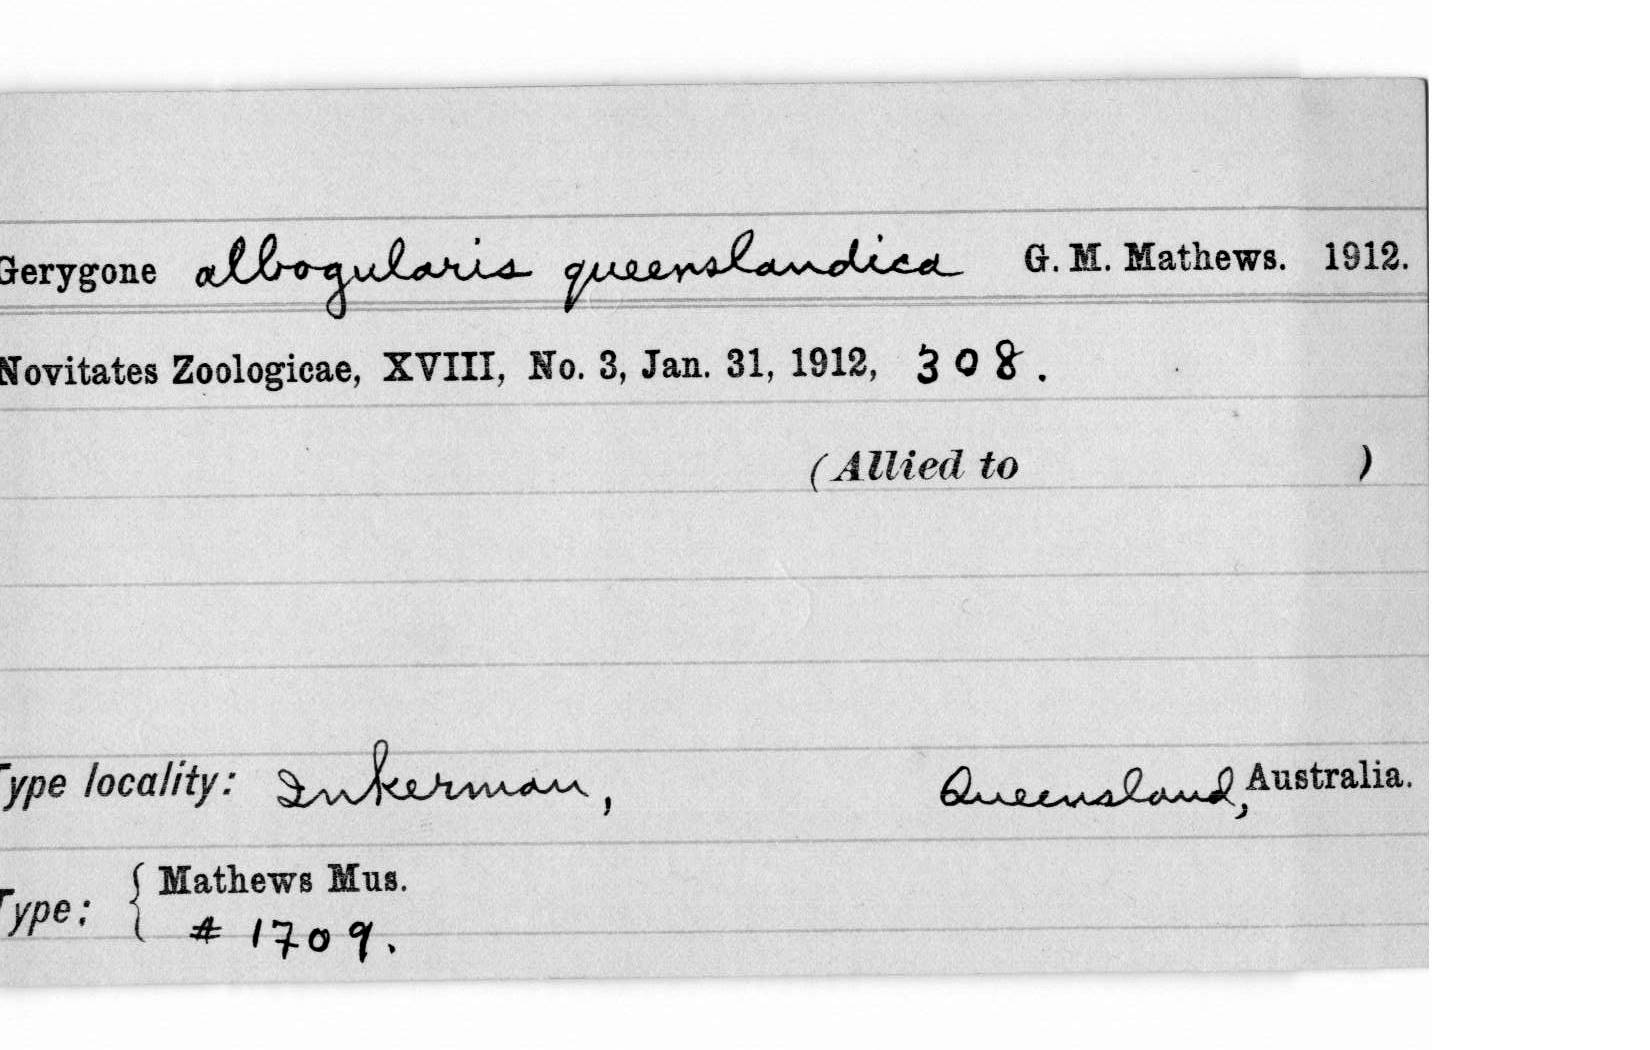 Gerygone albogularis queenslandica G. M. Mathews. 1912.
Novitates Zoologicae, XVIII, No. 3, Jan. 31, 1912, 308.
(Allied to )
Type locality: Inkerman, Queensland, Australia.
Type: { Mathews Mus.
# 1709.